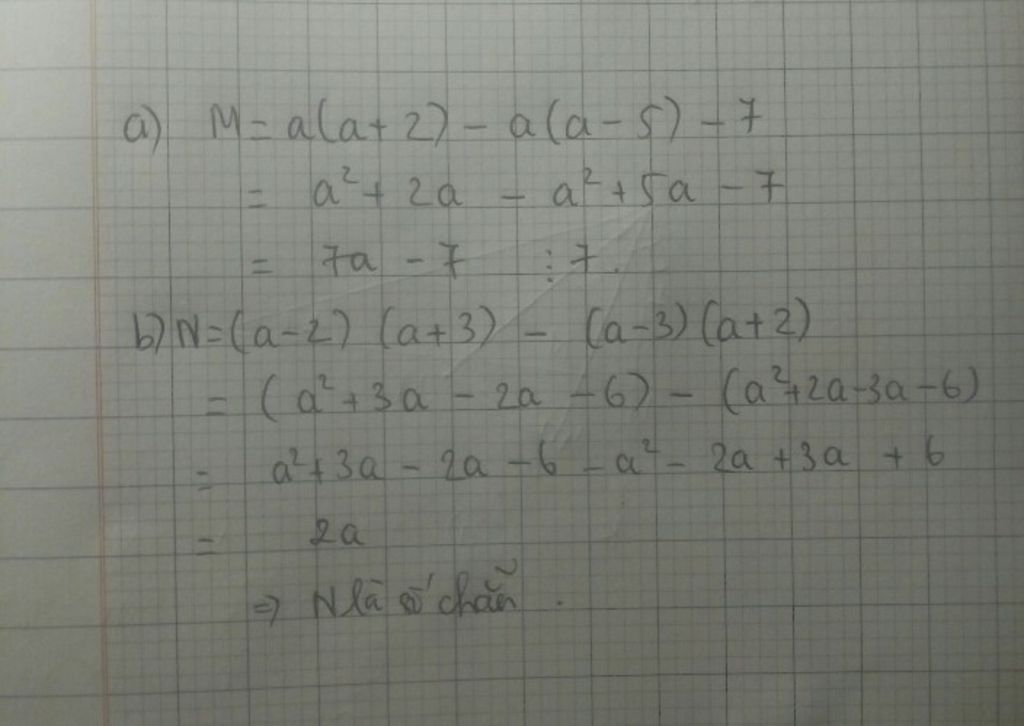 a) M = a(a+2) - a(a-5) - 7
= a² + 2a - a² + 5a - 7
= 7a - 7 ⋮ 7.
b) N = (a-2) (a+3) - (a-3)(a+2)
= (a² + 3a - 2a - 6) - (a²+2a-3a-6)
= a² + 3a - 2a - 6 - a² - 2a + 3a + 6
= 2a
⇒ N là số chẵn.